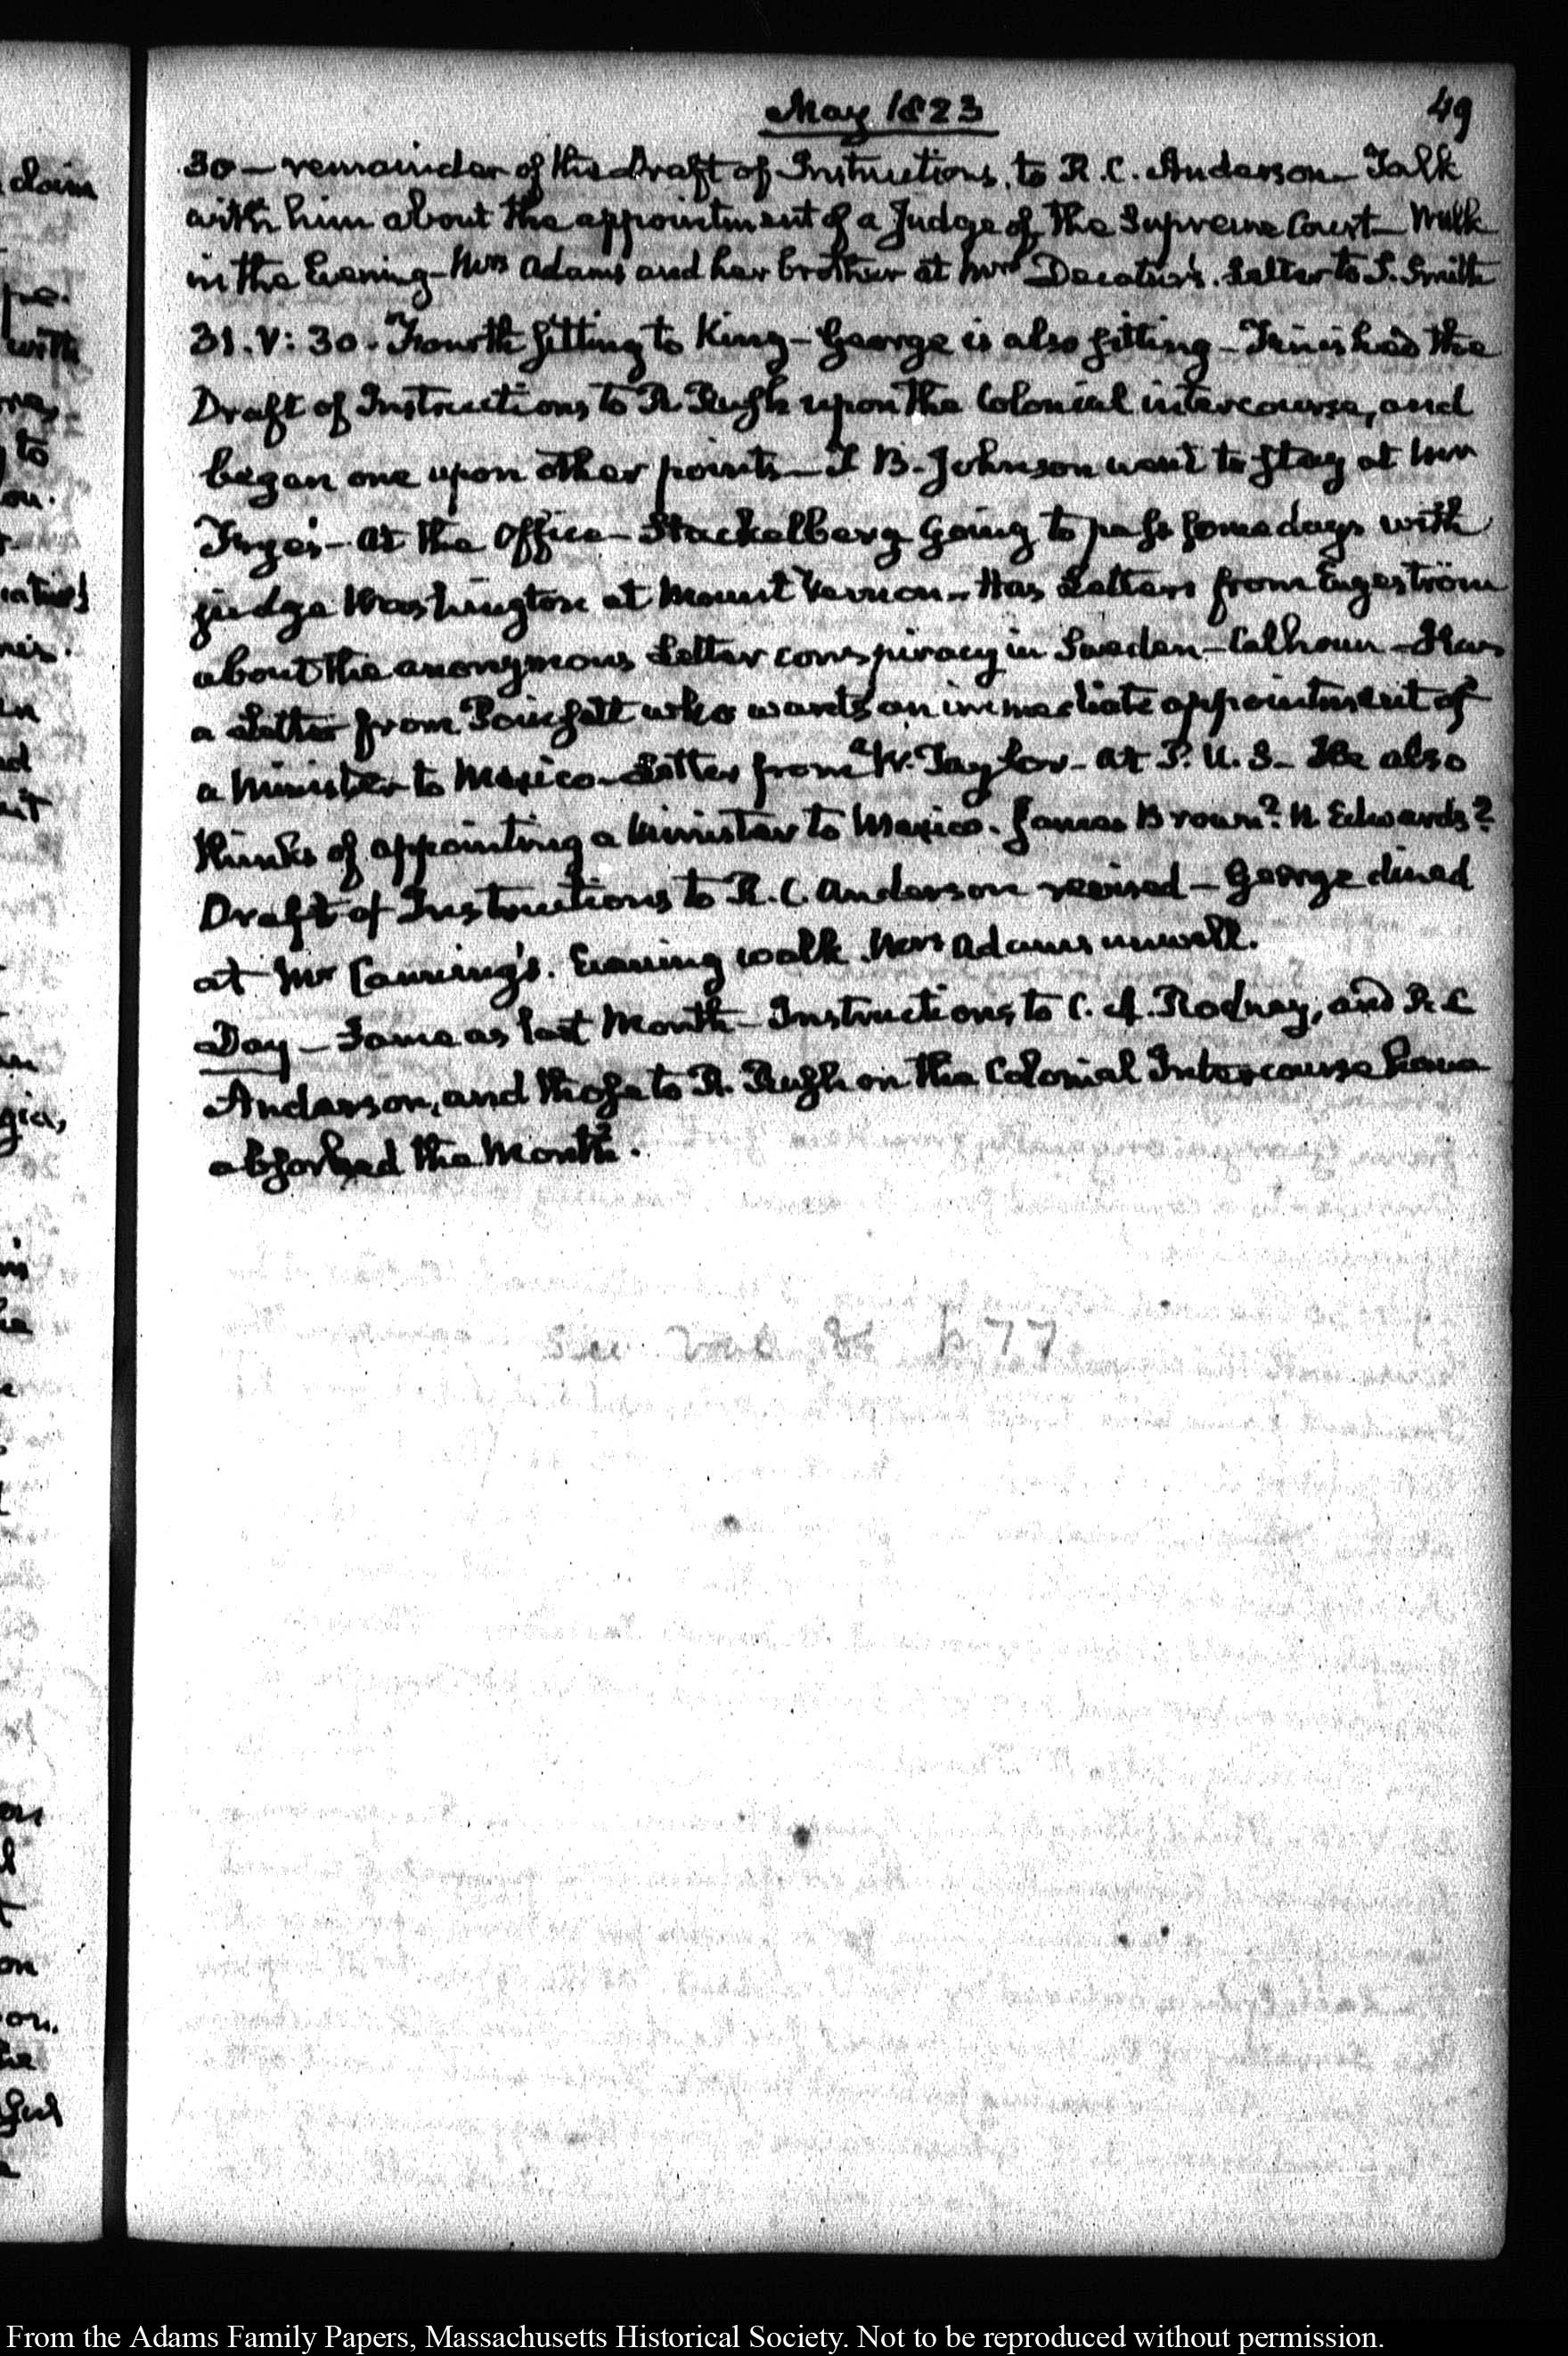 May 1823
49
30 – remainder of the Draft of Instructions, to R. C. Anderson – Talk
with him about the appointment of a Judge of the Supreme Court – Walk
in the Evening – Mrs Adams and her brother at Mrs Decatur's. Letter to S. Smith
31. V: 30. Fourth sitting to King – George is also sitting – Finished the
Draft of Instructions to R. Rush upon the Colonial intercourse, and
began one upon other points – T B. Johnson went to stay at Mrs
Frye's – At the Office – Stackelberg going to pass some days with
judge Washington at Mount Vernon – Has Letters from Engeström
about the anonymous Letter conspiracy in Sweden – Calhoun – Has
a Letter from Poinsett who wants an immediate appointment of
a Minister to Mexico – Letter from W. Taylor – At P. U. S – He also
thinks of appointing a Minister to Mexico. James Brown? N. Edwards?
Draft of Instructions to R. C. Anderson revised – George dined
at Mr Canning's. Evening walk. Mrs Adams unwell.
Day – Same as last Month – Instructions to C. A. Rodney, and R. C
Anderson, and those to R. Rush on the Colonial Intercourse have
absorbed the Month.
p 77
claim
with
to
gia,
From the Adams Family Papers, Massachusetts Historical Society. Not to be reproduced without permission.